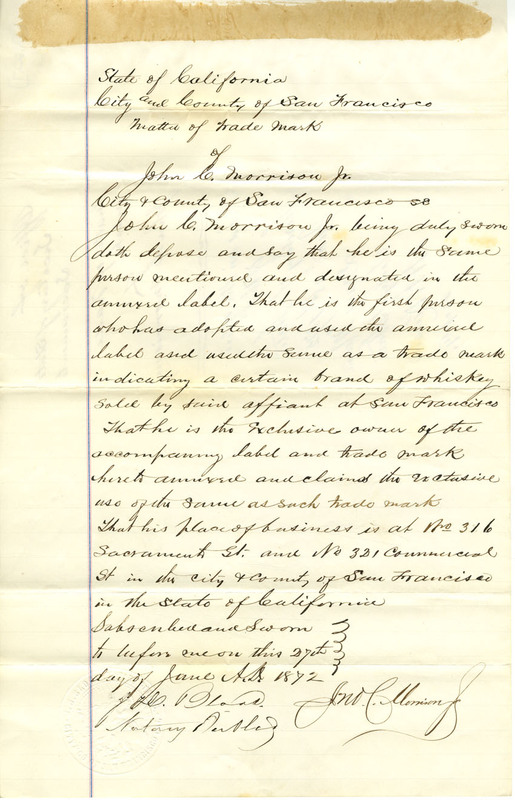 State of California
City and County of San Francisco
Matter of Trade Mark
of
John C. Morrison Jr.
City & County of San Francisco SS
John C. Morrison Jr. being duly sworn
doth depose and say that he is the same
person mentioned and designated in the
annexed label. That he is the first person
who has adopted and used the annexed
label and used the same as a trade mark
indicating a certain brand of whiskey
sold by said affiant at San Francisco
That he is the Exclusive owner of the
accompanying label and trade mark
hereto annexed and claims the exclusive
use of the same as such trade mark
That his place of business is at No 316
Sacramento St. and No 321 Commercial
St in the City & County of San Francisco
in the State of California
Subscribed and Sworn
to before me on this 27th
day of June A.D. 1872
Jno. C. Morrison Jr
Notary Public